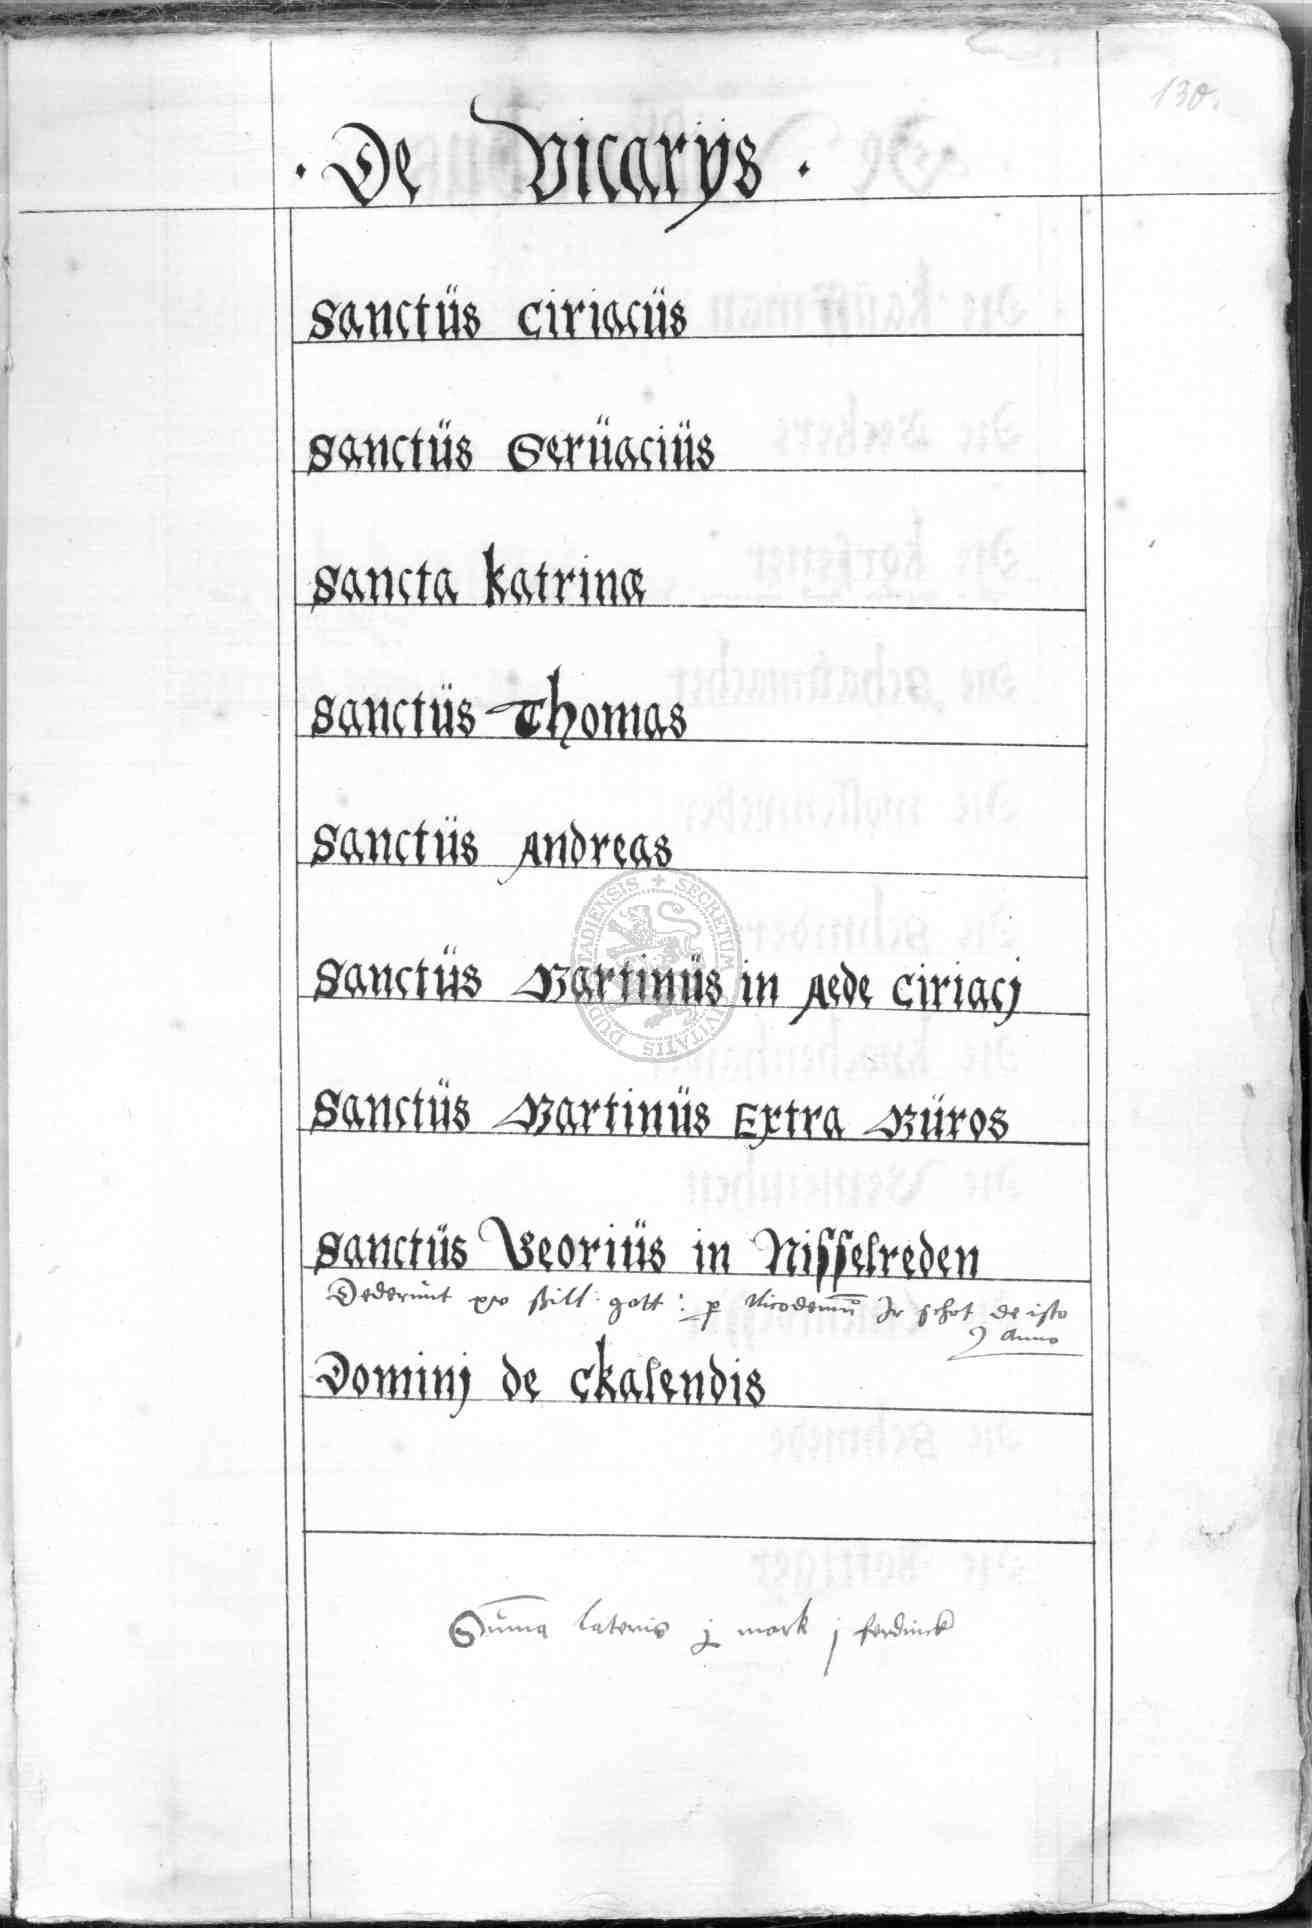 130.
· De Vicarijs ·
Sanctüs Ciriacüs
Sanctüs Serüaciüs
Sancta Katrina
Sanctüs Thomas
Sanctüs Andreas
Sanctüs Martinüs in Aede Ciriacj
Sanctüs Martinüs Extra Müros
Sanctüs Georiüs in Nisselreden
Dederunt xv ßill: gott: p Nicodemū Jr schot de isto
Anno
Dominj de Ckalendis
Sum̄a lateris j mark j ferdinck
SECRETUM CIVITATIS DUDERSTADIENSIS